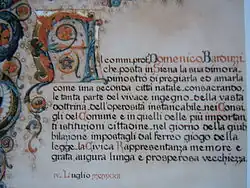 Al comm. prof. Domenico Barduzzi
che, posta in Siena la sua dimora,
primostrò di pregiarla ed amarla
come una seconda città natale, consacrando-
le tanta parte del vivace ingegno, della vasta
dottrina, dell'operosità instancabile, nei Consi-
gli del Comune e in quelli delle più importan-
ti istituzioni cittadine, nel giorno della gia-
bilazione impostagli dal ferreo giogo della
legge, la Civica Rappresentanza memore e
grata augura lunga e prosperosa vecchiezza
IV. Luglio